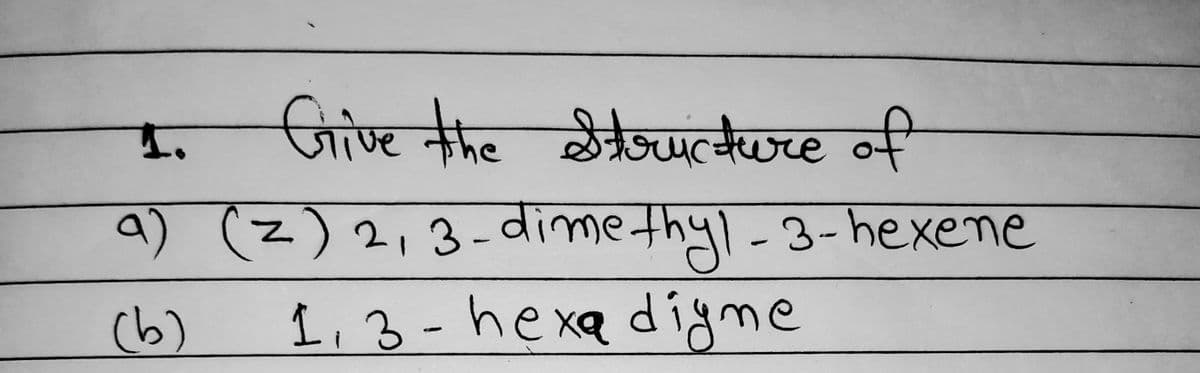 1. Give the Structure of
a) (z) 2, 3-dimethyl-3-hexene
(b) 1, 3-hexadiyne